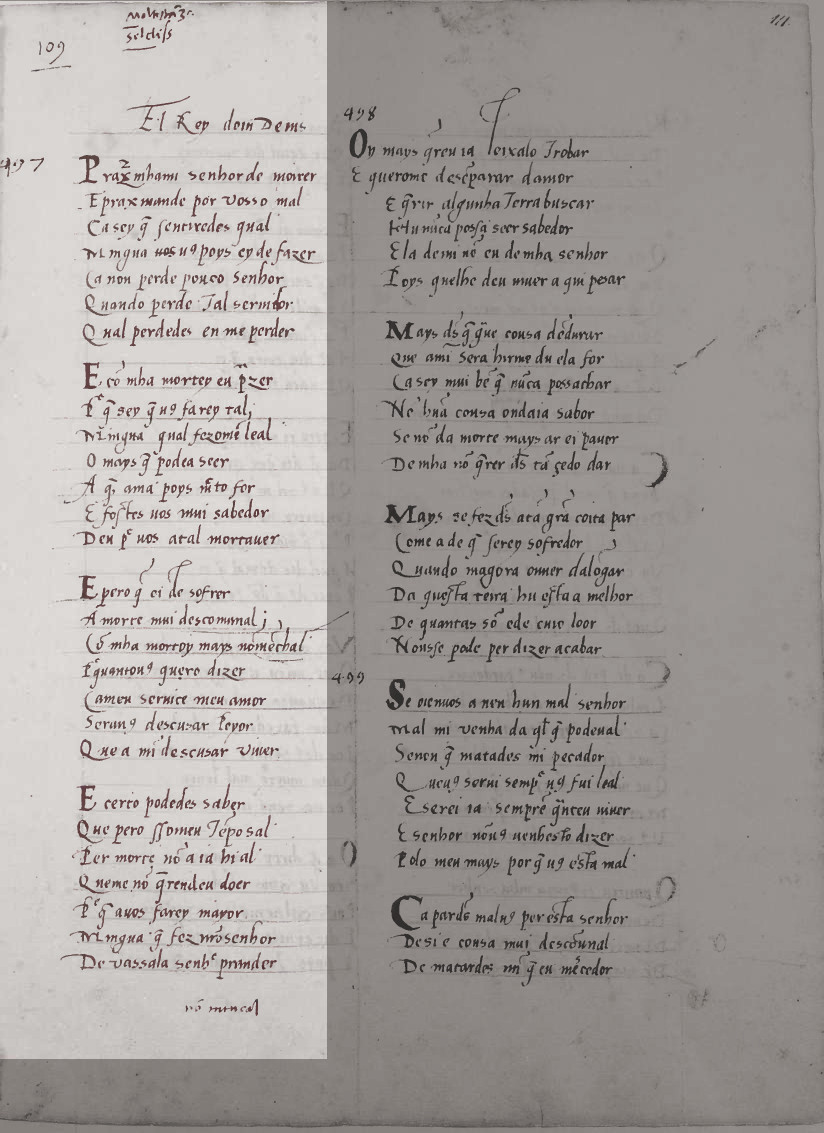 109
El Rey dom Denis
497
Praz mhami senhor de moirer
E praxmande por vosso mal
Ca sey q̃ sentiredes qual
Mingua uos u9 poys ey de fazer
Ca non perde pouco senhor
Quando perde Tal seruidor
Qual perdedes en me perder
E cõ mha mortey eu p̃zer
Pͤ q̃ sey q̃ u9 farey tal
Mingua qual fezome leal
O mays q̃ podea seer
A q̃ ama poys mͬto for
E fostes uos mui sabedor
Deu pͤ uos atal mortauer
E pero q̃ ei de sofrer
A morte mui descomunal
Cõ mha mortoy mays nõmechal
Pͤ quantou9 quero dizer
Cameu seruice meu amor
Seruu9 descusar peyor
Que a mi descusar viuer
E certo podedes saber
Que pero ssomeu Tẽpo sal
Per morte nõ a ia hi al
Queme nõ q̃rendeu doer
Pͤ q̃ auos farey mayor
Mingua q̃ fez nrõ senhor
De vassala senhͤ prander
498
Oy mays q̃reu ia leixalo Trobar
E querome desẽparar damor
E q̃rir algunha Terra buscar
Hu nũca possa seer sabedor
Ela demi nẽ eu de mha senhor
Poys quelhe deu uiuer a qui pesar
Mays ds̃ q̃ g̃ue cousa dẽdurar
Que ami sera hirme du ela for
Ca sey mui bẽ q̃ nũca possachar
Nẽ hũa cousa ondaia sabor
Se nõ da morte mays ar ei pauor
De mha nõ q̃rer ds̃ tã çedo dar
Mays se fez ds̃ atã grã coita par
Come a de q̃ serey sofredor
Quando magora ouuer dalõgar
Da questa terra hu esta a melhor
De quantas sõ e de cuio loor
Nõ sse pode per dizer acabar
499
Se oieuuos a nen hun mal senhor
Mal mi venha da ql̃ q̃ podeual
Senon q̃ matades mi pecador
Q ueu9 serui sempͤ u9 fui leal
E serei ia sempre q̃nteu uiuer
E senhor nõ u9 uenhesto dizer
Polo meu mays por q̃ u9 esta mal
Ca pardš malu9 per esta senhor
Desi e cousa mui descõunal
De matardes mi q̃ eu mẽcedor